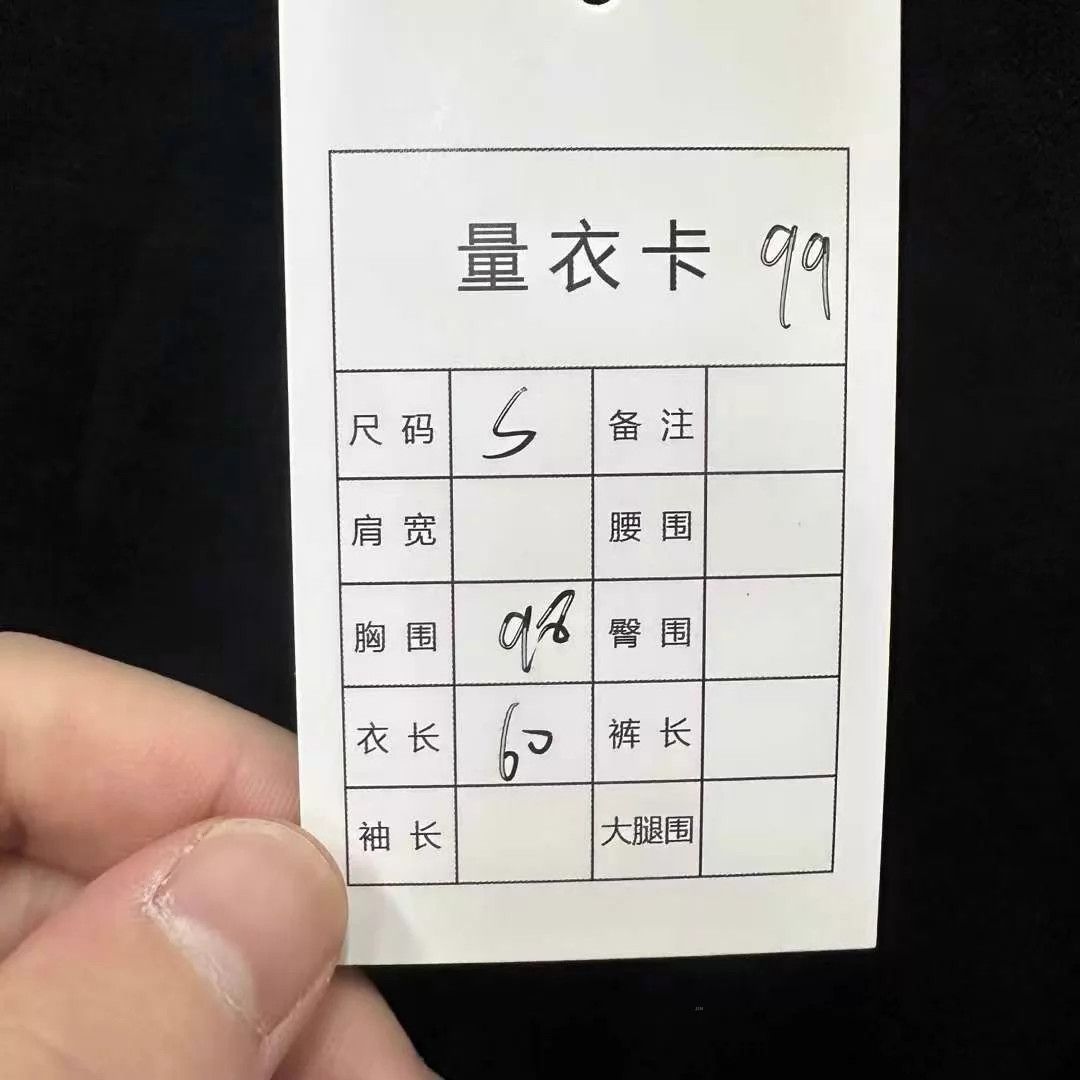 量衣卡 99
尺码 S 备注
肩宽 腰围
胸围 98 臀围
衣长 60 裤长
袖长 大腿围